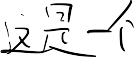 这是一个